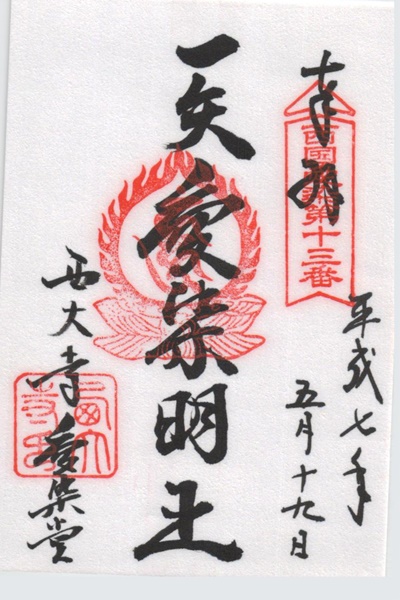 奉拝
西国愛染第十三番
平成七年
五月十九日
一矢愛染明王
西大寺愛染堂